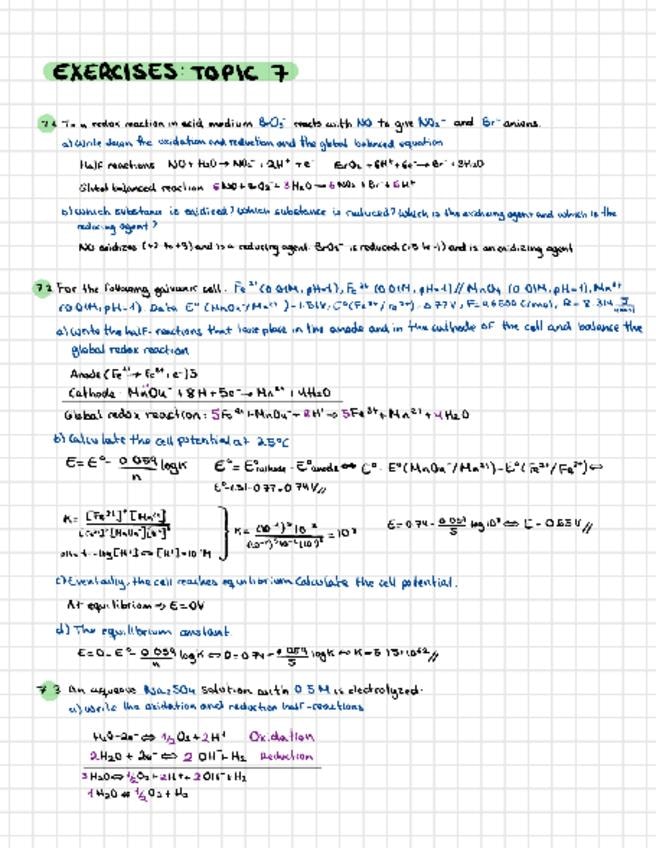 EXERCISES: TOPIC 7
7.1 In a redox reaction in acid medium BrO₃⁻ reacts with NO to give NO₂⁻ and Br⁻ anions.
a) Write down the oxidation and reduction and the global balanced equation
Half reactions NO + H₂O → NO₂⁻ + 2H⁺ + e⁻ BrO₃⁻ + 6H⁺ + 6e⁻ → Br⁻ + 3H₂O
Global balanced reaction 6NO + 3H₂O → 6NO₂⁻ + Br⁻ + 6H⁺
b) Which substance is oxidized? Which substance is reduced? Which is the oxidizing agent and which is the
reducing agent?
NO oxidizes (+2 to +3) and is a reducing agent. BrO₃⁻ is reduced (+5 to -1) and is an oxidizing agent
7.2 For the following galvanic cell: Fe²⁺ (0.01M, pH=1), Fe³⁺ (0.01M, pH=1) // MnO₄⁻ (0.01M, pH=1), Mn²⁺
(0.01M, pH=1). Data E° (MnO₄⁻/Mn²⁺) = 1.51V, E° (Fe³⁺/Fe²⁺) = 0.77V, R = 8.314
a) Write the half-reactions that take place in the anode and in the cathode of the cell and balance the
global redox reaction
Anode (Fe²⁺ → Fe³⁺ + e⁻) 5
Cathode MnO₄⁻ + 8H⁺ + 5e⁻ → Mn²⁺ + 4H₂O
Global redox reaction: 5Fe²⁺ + MnO₄⁻ + 8H⁺ → 5Fe³⁺ + Mn²⁺ + 4H₂O
b) Calculate the cell potential at 25°C
E = E° - 0.059/n log K E° = E°cathode - E°anode ⇔ E° = E°(MnO₄⁻/Mn²⁺) - E°(Fe³⁺/Fe²⁺) ⇔
E° = 1.51 - 0.77 = 0.74V //
K = [Fe³⁺]⁵ [Mn²⁺] / [Fe²⁺]⁵ [MnO₄⁻] [H⁺]⁸ } K = = 10⁸ E = 0.74 - 0.059/5 log 10⁸ ⇔ E = 0.65V //
pH = 1 = -log [H⁺] ⇔ [H⁺] = 10⁻¹M
c) Eventually, the cell reaches equilibrium. Calculate the cell potential.
At equilibrium → E = 0V
d) The equilibrium constant
E = 0 = E° - 0.059/n log K ⇔ 0 = 0.74 - 0.059/5 log K ⇔ K = 5.13·10⁶² //
7.3 An aqueous Na₂SO₄ solution with 0.5M is electrolyzed.
a) Write the oxidation and reduction half-reactions
H₂O - 2e⁻ ⇔ 1/2 O₂ + 2H⁺ Oxidation
2H₂O + 2e⁻ ⇔ 2OH⁻ + H₂ Reduction
3H₂O ⇔ 1/2 O₂ + 2H⁺ + 2OH⁻ + H₂
1H₂O ⇔ 1/2 O₂ + H₂